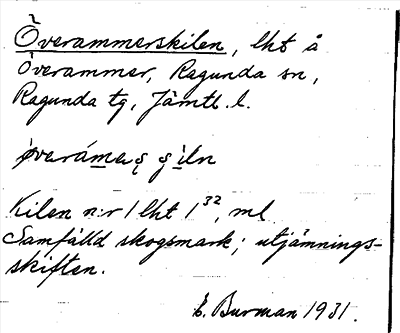 Överammerskilen, lht å
Överammer, Ragunda sn,
Ragunda tg, Jämtl. l.
Kilen n:r 1 lht 1³², ml
Samfälld skogsmark; utjämnings-
skiften.
E. Burman 1931.